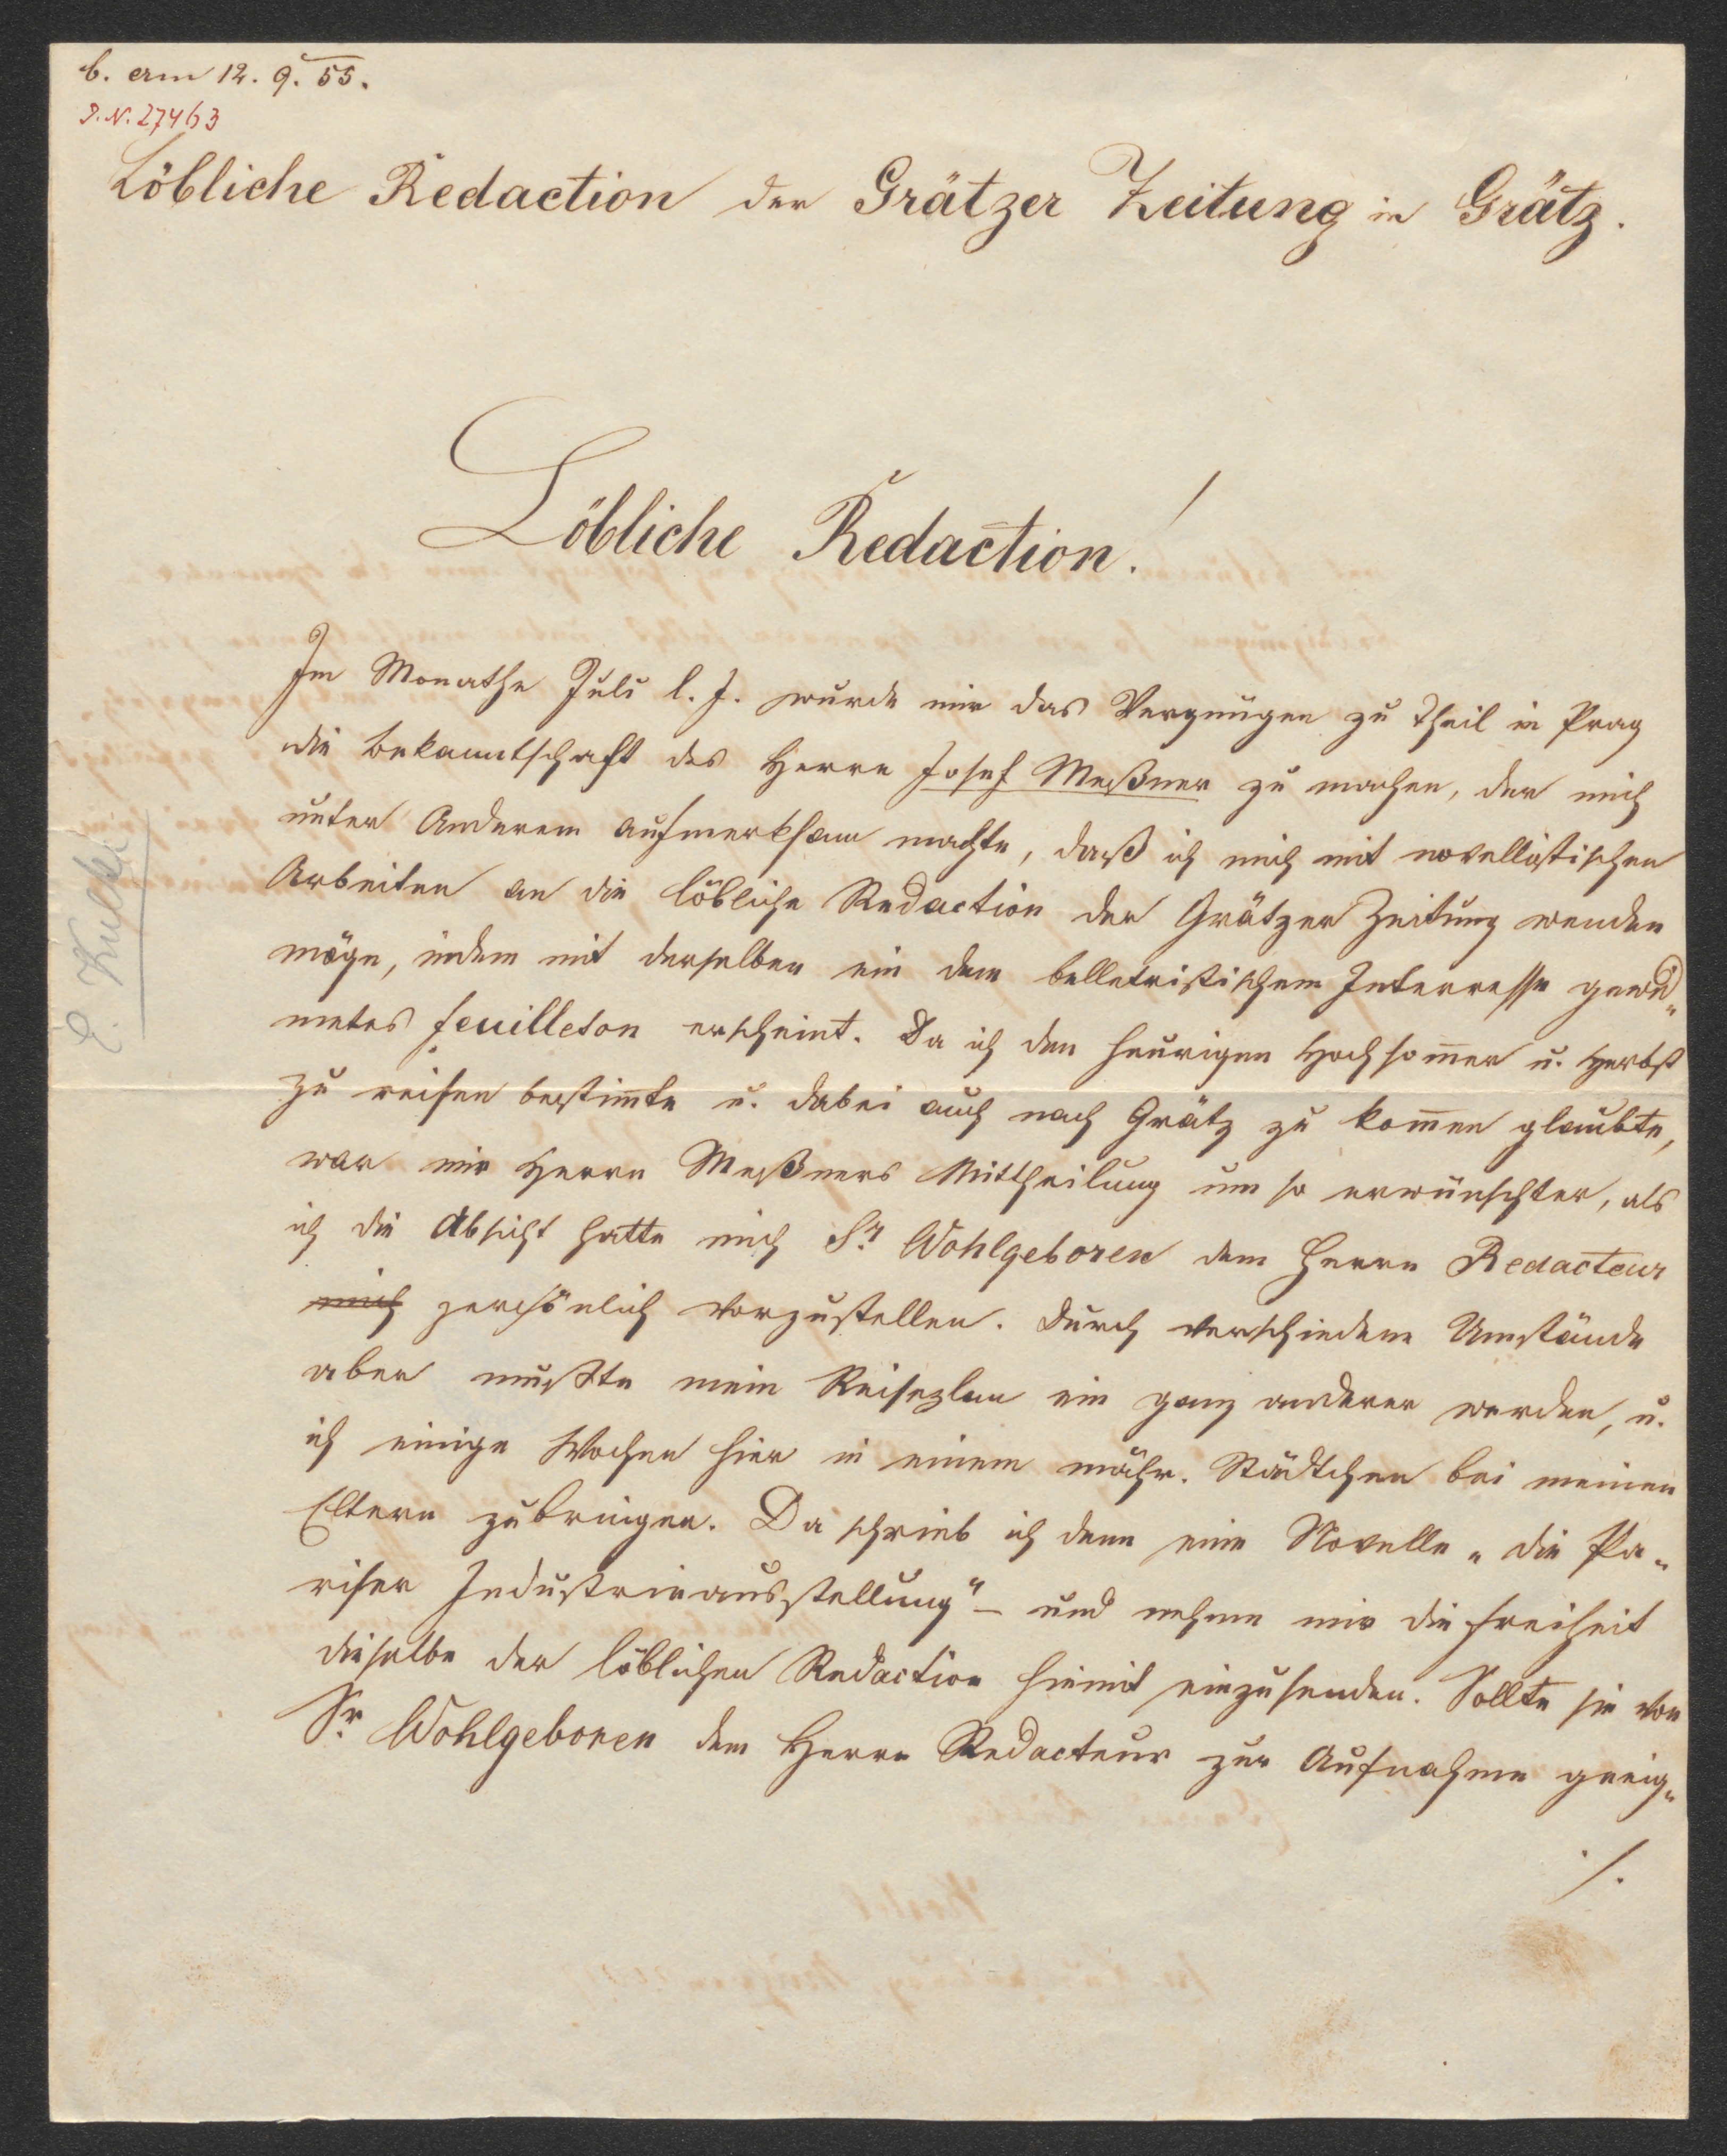 b. am 12. 9. 55.
I.N. 27463
Löbliche Redaction der Grätzer Zeitung in Grätz.
Löbliche Redaction!
Im Monathe Juli l. J. wurde mir das Vergnügen zu Theil in Prag
die Bekanntschaft des Herrn Josef Meßner zu machen, der mich
unter Anderem aufmerksam machte, daß ich mich mit novellistischen
Arbeiten an die löbliche Redaction der Grätzer Zeitung wenden
möge, indem mit derselben ein dem belletristischem Interesse gewid„
metes Feuilleton erscheint. Da ich den heurigen Hochsom̄er u. Herbst
zu reisen bestim̄te u. dabei auch nach Grätz zu kom̄en glaubte,
war mir Herrn Meßners Mittheilung um so erwünschter, als
ich die Absicht hatte mich Sr Wohlgeboren dem Herrn Redacteur
mich persönlich vorzustellen. Durch verschiedene Umstände
aber mußte mein Reiseplan ein ganz anderer werden, u.
ich einige Wochen hier in einem mähr. Städtchen bei meinen
Eltern zubringen. Da schrieb ich denn eine Novelle „die Pa„
riser Industrieausstellung" – und nehme mir die Freiheit
dieselbe der löblichen Redaction hiemit einzusenden. Sollte sie von
Sr Wohlgeboren dem Herrn Redacteur zur Aufnahme geeig„
./.
E. Kulke